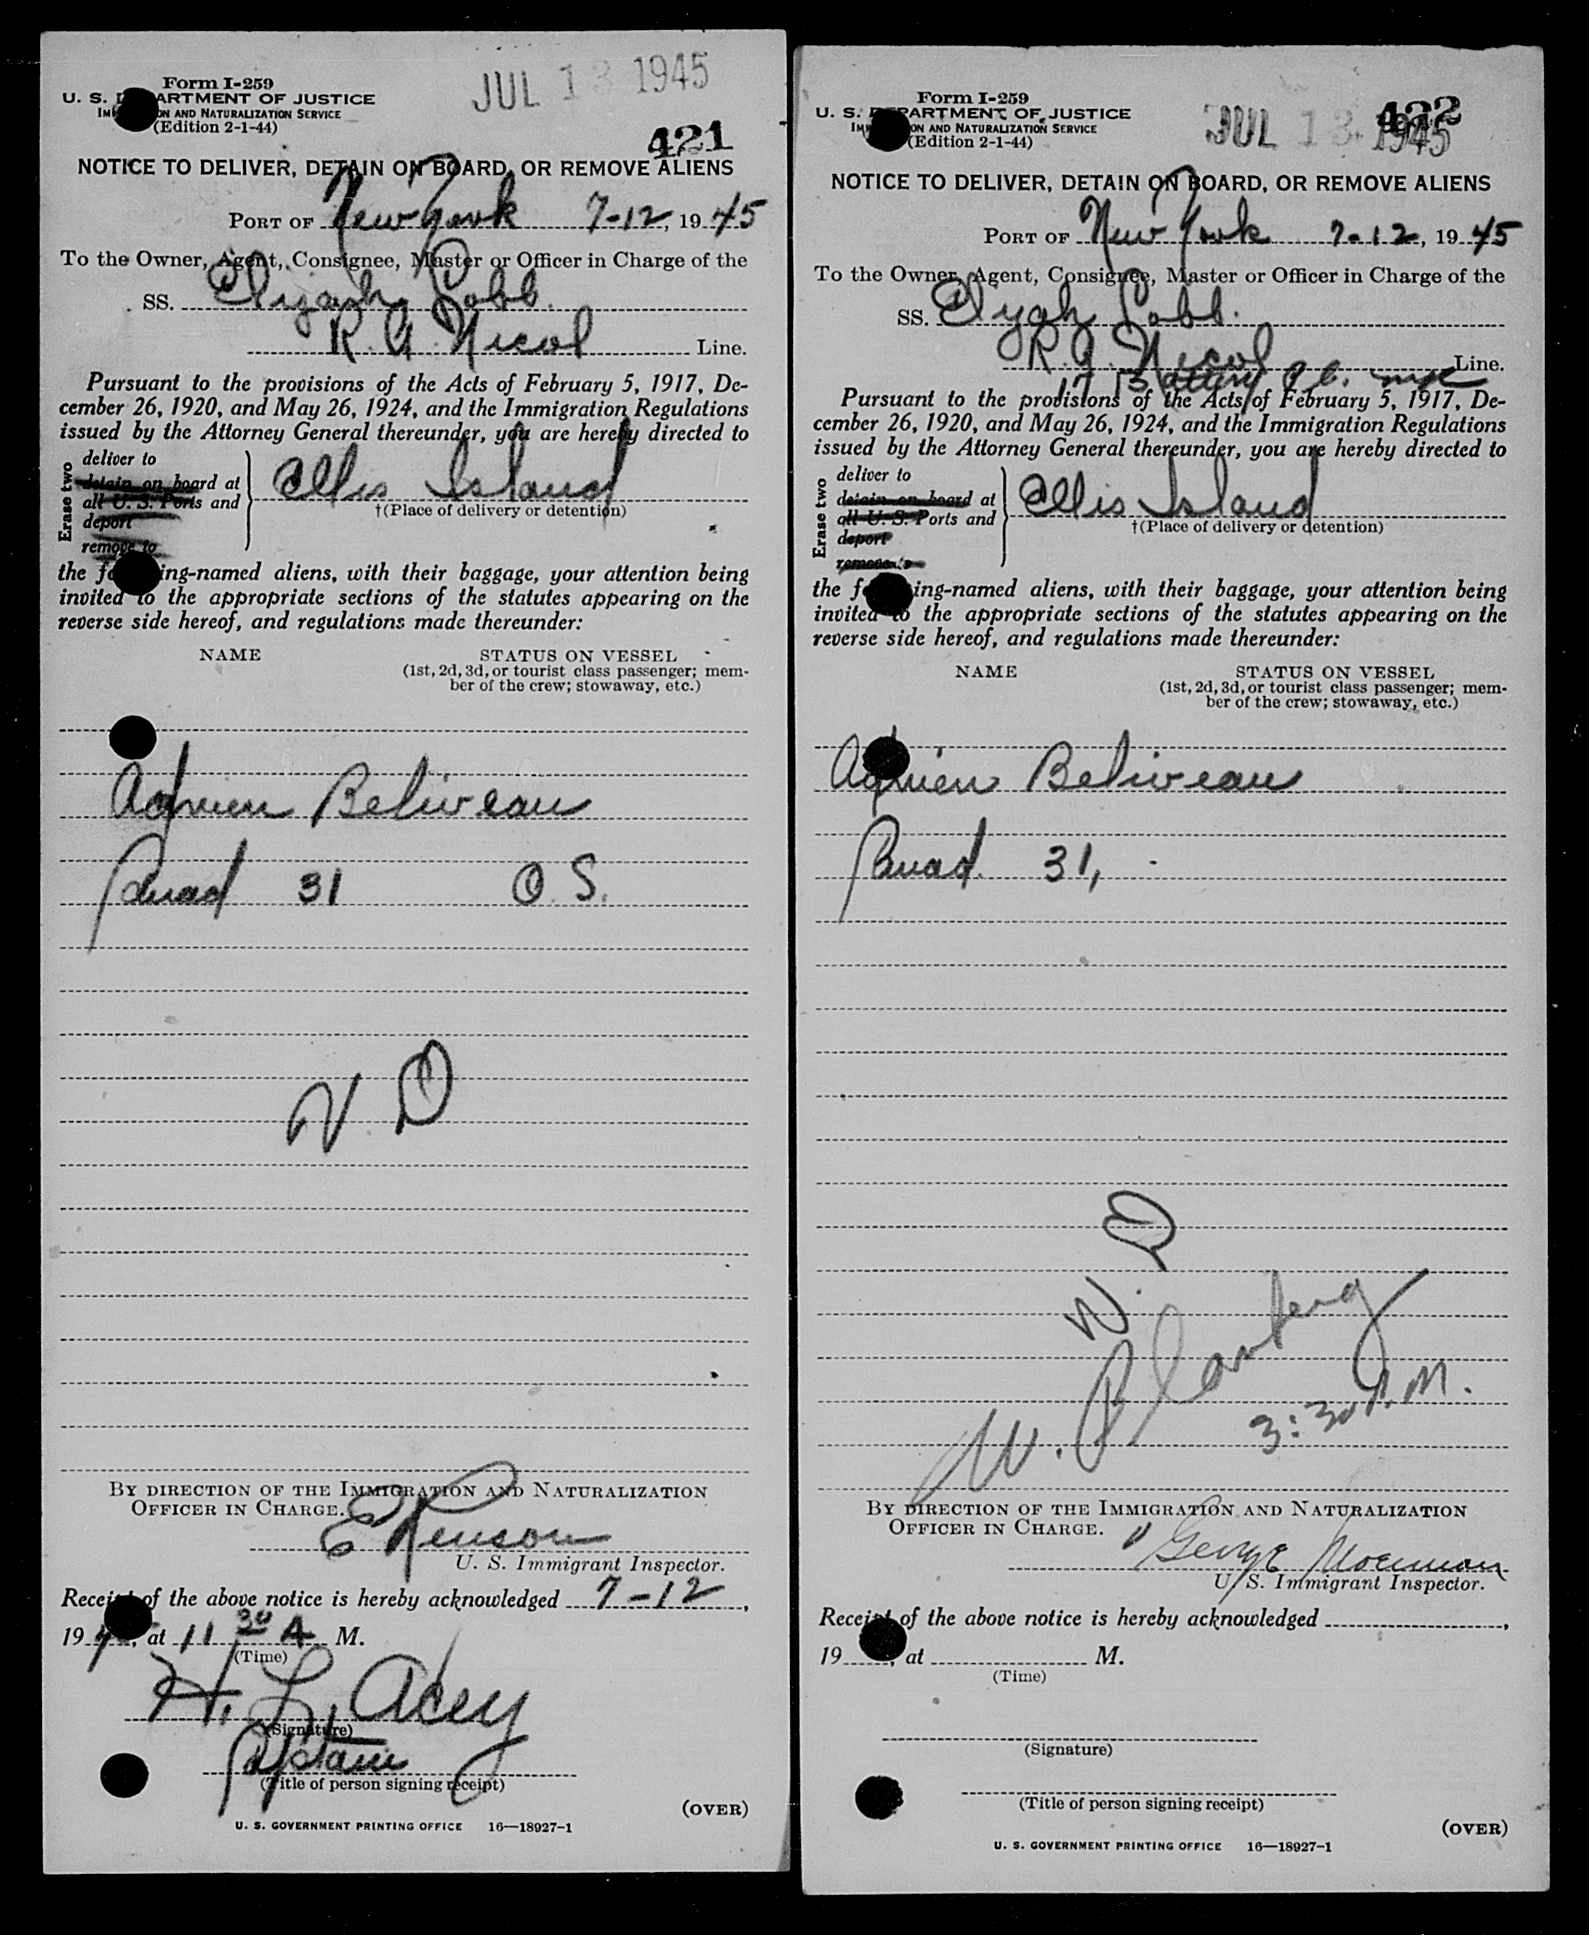 JUL 13 1945
Form I-259
U. S. DEPARTMENT OF JUSTICE
IMMIGRATION AND NATURALIZATION SERVICE
(Edition 2-1-44)
421
NOTICE TO DELIVER, DETAIN ON BOARD, OR REMOVE ALIENS
PORT OF New York 7-12, 19 45
To the Owner, Agent, Consignee, Master or Officer in Charge of the
SS. Elijah Cobb.
R. A. Nicol Line.
Pursuant to the provisions of the Acts of February 5, 1917, De-
cember 26, 1920, and May 26, 1924, and the Immigration Regulations
issued by the Attorney General thereunder, you are hereby directed to
Erase two
deliver to
detain on board at
all U. S. Ports and
deport
remove to
Ellis Island
†(Place of delivery or detention)
the following-named aliens, with their baggage, your attention being
invited to the appropriate sections of the statutes appearing on the
reverse side hereof, and regulations made thereunder:
NAME STATUS ON VESSEL
(1st, 2d, 3d, or tourist class passenger; mem-
ber of the crew; stowaway, etc.)
Adrien Beliveau
31 O. S.
N. D
BY DIRECTION OF THE IMMIGRATION AND NATURALIZATION
OFFICER IN CHARGE.
U. S. Immigrant Inspector.
Receipt of the above notice is hereby acknowledged 7-12,
19 4, at 11 30 A M.
(Time)
H. L. Acey
(Signature)
Captain
(Title of person signing receipt)
(OVER)
U. S. GOVERNMENT PRINTING OFFICE 16—18927-1
Form I-259
U. S. DEPARTMENT OF JUSTICE
IMMIGRATION AND NATURALIZATION SERVICE
(Edition 2-1-44)
JUL 13 1945
422
NOTICE TO DELIVER, DETAIN ON BOARD, OR REMOVE ALIENS
PORT OF New York 7-12, 19 45
To the Owner, Agent, Consignee, Master or Officer in Charge of the
SS. Elijah Cobb.
R. A. Nicol Line.
17 Battery Pl. NYC
Pursuant to the provisions of the Acts of February 5, 1917, De-
cember 26, 1920, and May 26, 1924, and the Immigration Regulations
issued by the Attorney General thereunder, you are hereby directed to
Erase two
deliver to
detain on board at
all U. S. Ports and
deport
remove to
Ellis Island
†(Place of delivery or detention)
the following-named aliens, with their baggage, your attention being
invited to the appropriate sections of the statutes appearing on the
reverse side hereof, and regulations made thereunder:
NAME STATUS ON VESSEL
(1st, 2d, 3d, or tourist class passenger; mem-
ber of the crew; stowaway, etc.)
Adrien Beliveau
31,
N. D
3:30 P.M.
BY DIRECTION OF THE IMMIGRATION AND NATURALIZATION
OFFICER IN CHARGE.
George
U. S. Immigrant Inspector.
Receipt of the above notice is hereby acknowledged ,
19 , at M.
(Time)
(Signature)
(Title of person signing receipt)
(OVER)
U. S. GOVERNMENT PRINTING OFFICE 16—18927-1